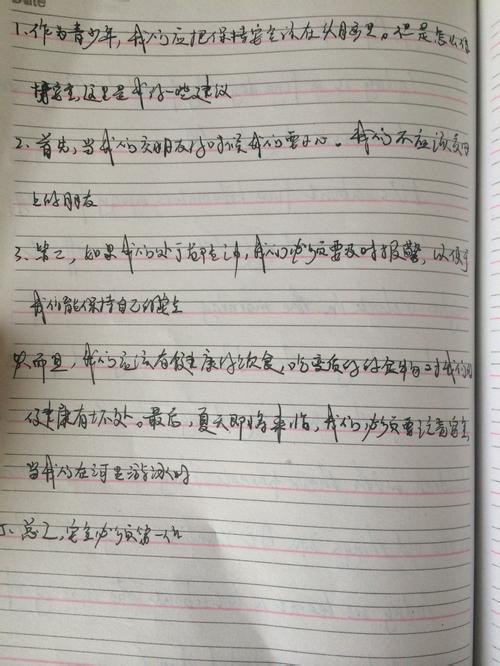 Date
1.作为青少年,我们应把保持安全放在头脑里。但是怎么保
持安全,这里是我的一些建议
2.首先,当我们交朋友的时候我们要小心。我们不应该交网
上的朋友
3.第二,如果我们处于危险之中,我们必须要及时报警,以便于
我们能保持自己的安全
而且,我们应该有健康的饮食,吃变质的食物对我们的
健康有坏处。最后,夏天即将来临,我们必须要注意安全,
当我们在河里游泳时
5.总之,安全必须第一位